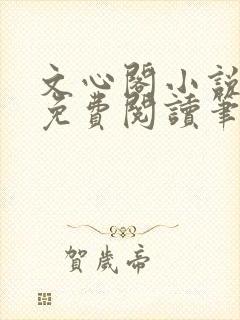 文心閣小說
免費閱讀筆
賀歲帝